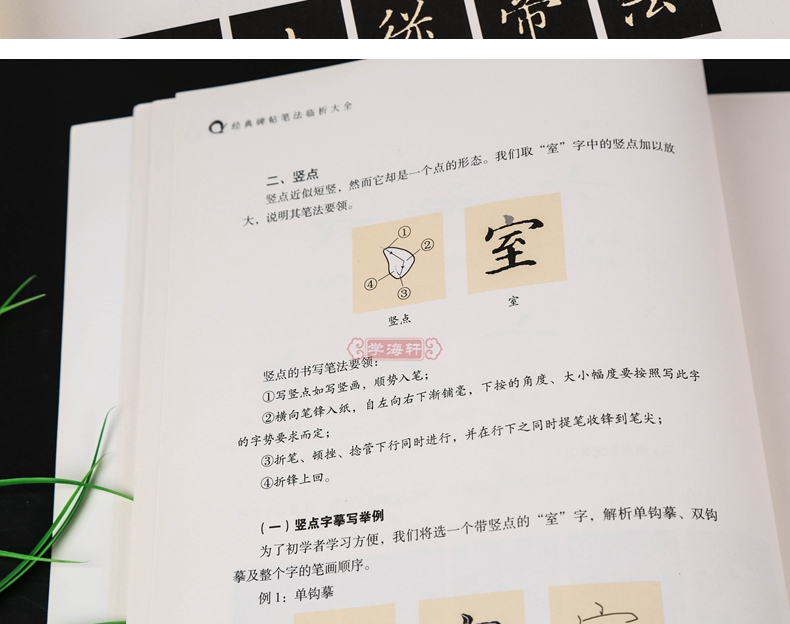 帝
法
经典碑帖笔法临析大全
二、竖点
竖点近似短竖，然而它却是一个点的形态。我们取“室”字中的竖点加以放
大，说明其笔法要领。
①
②
④
③
室
竖点
室
学海轩
竖点的书写笔法要领：
①写竖点如写竖画，顺势入笔；
②横向笔锋入纸，自左向右下渐铺毫，下按的角度、大小幅度要按照写此字
的字势要求而定；
③折笔、顿挫、捻管下行同时进行，并在行下之同时提笔收锋到笔尖；
④折锋上回。
（一）竖点字摹写举例
为了初学者学习方便，我们将选一个带竖点的“室”字，解析单钩摹、双钩
摹及整个字的笔画顺序。
例1：单钩摹